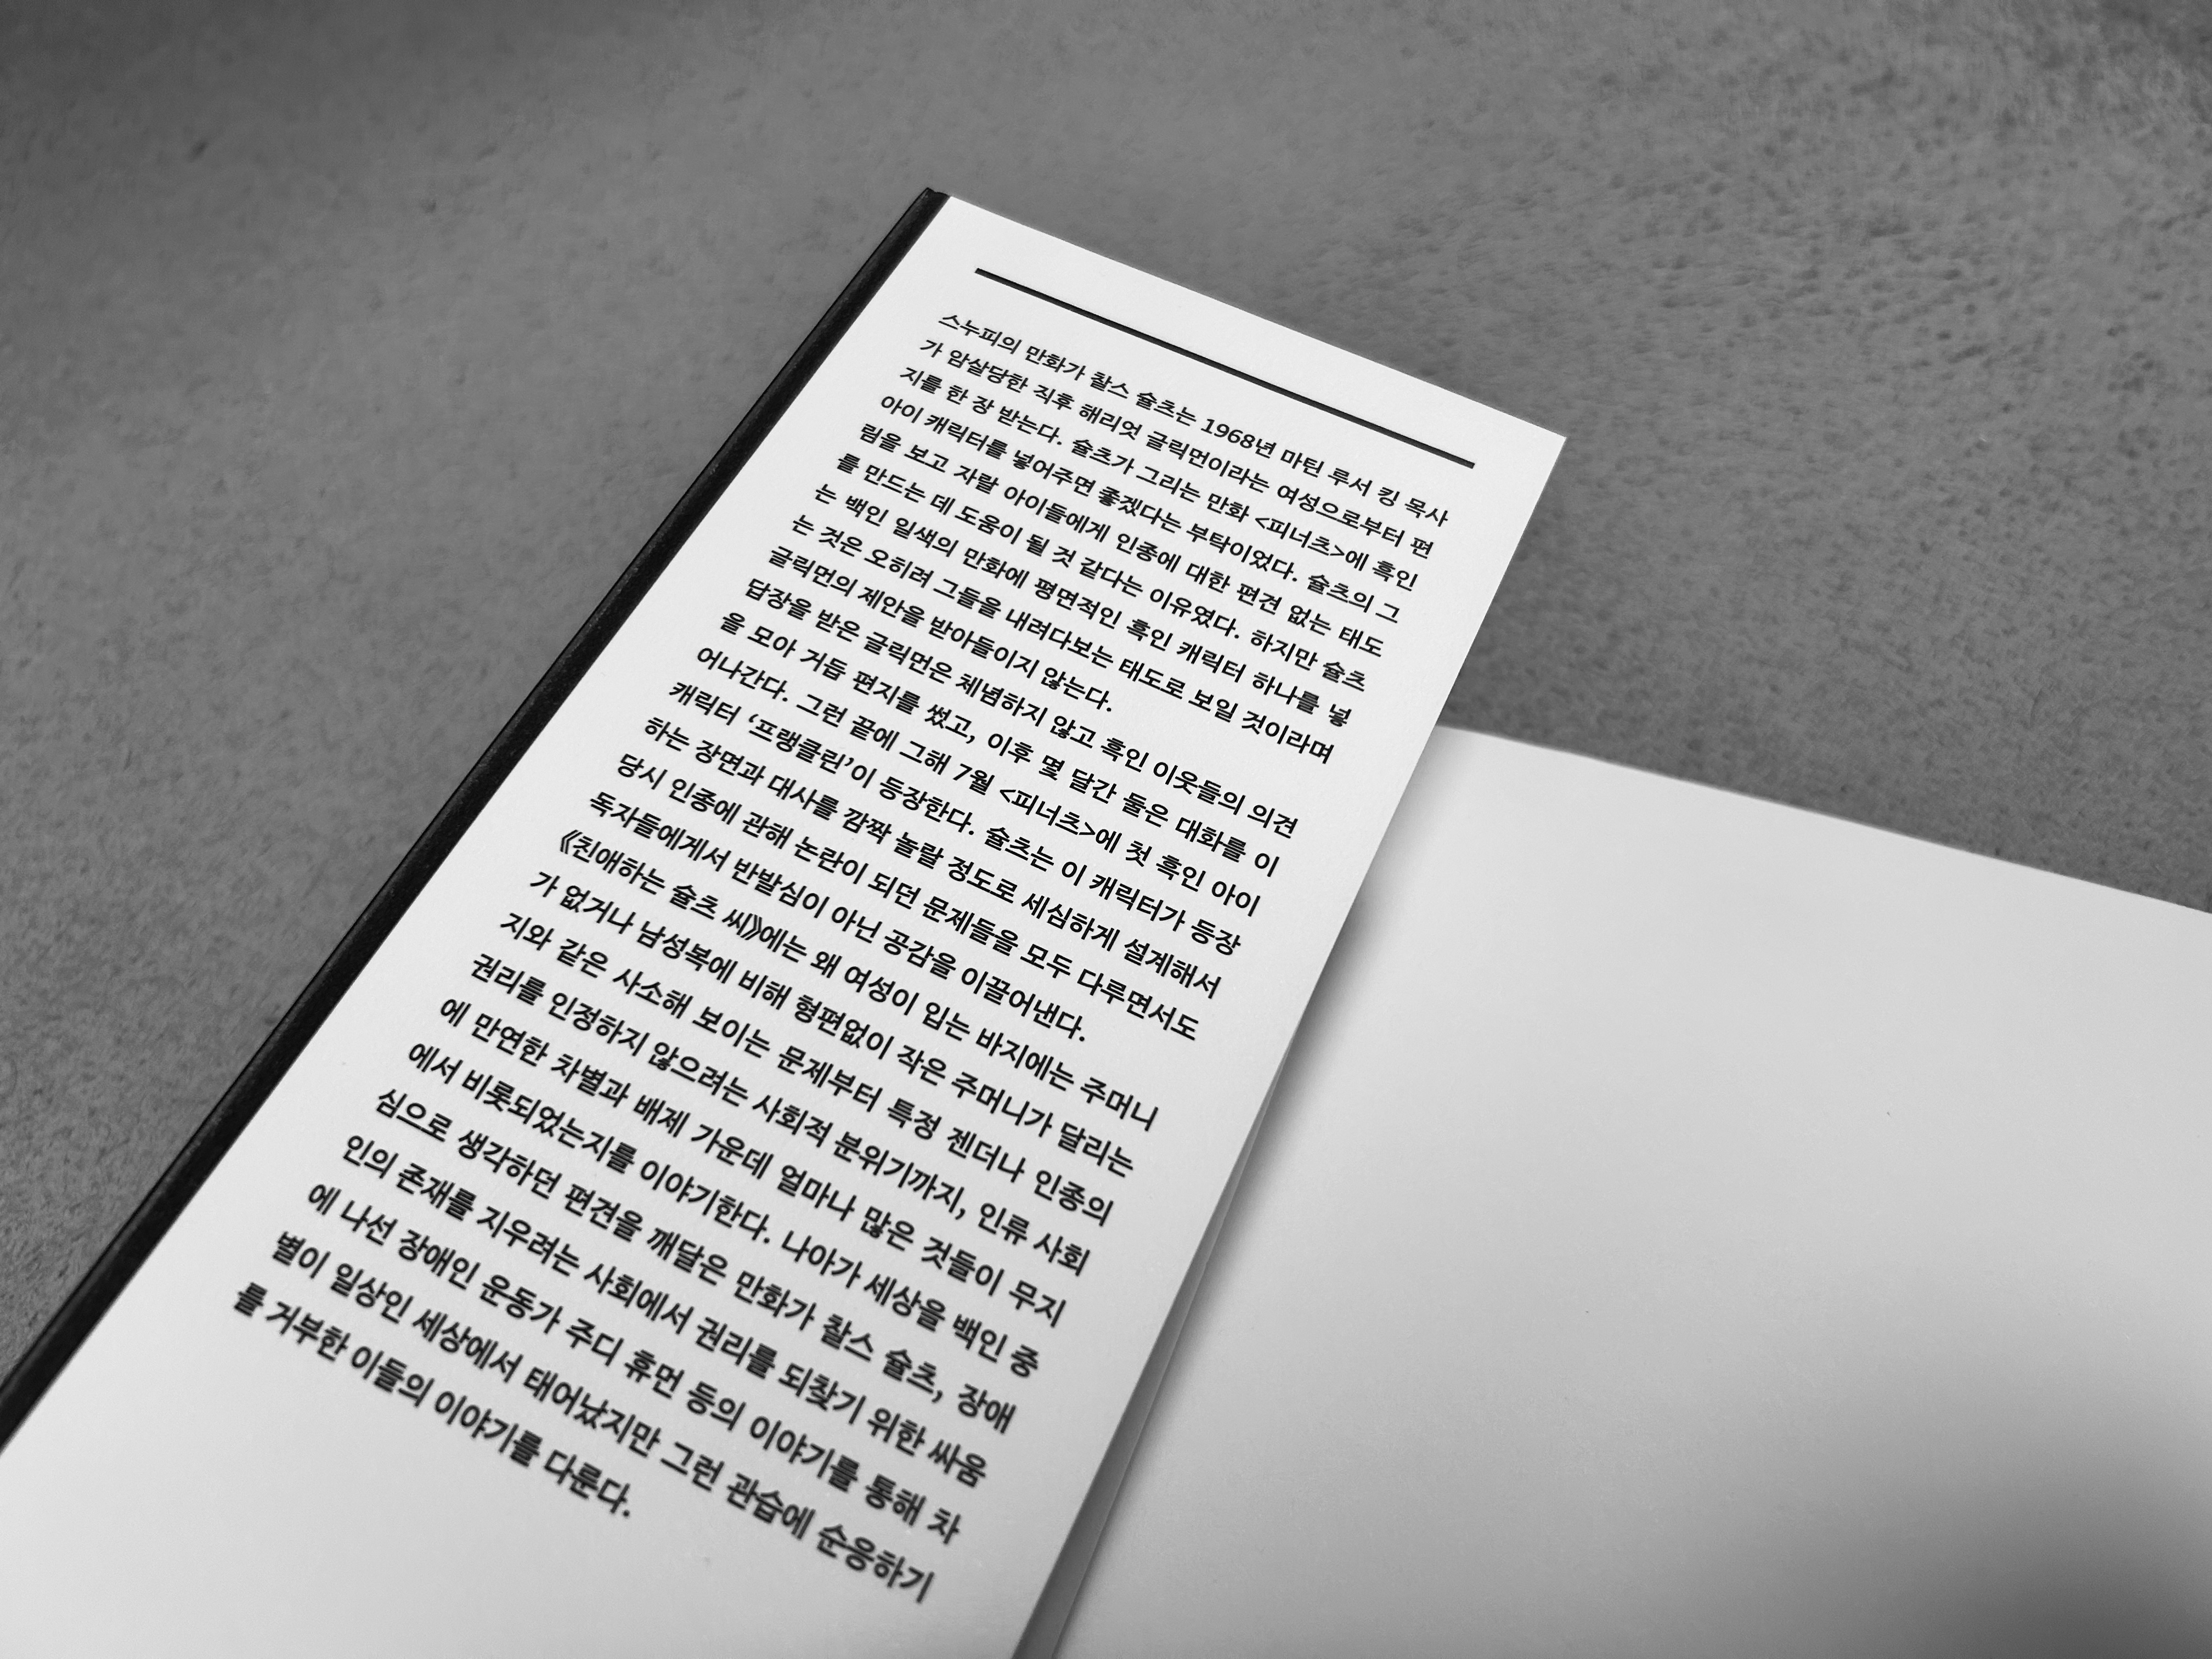 스누피의 만화가 찰스 슐츠는 1968년 마틴 루서 킹 목사
가 암살당한 직후 해리엇 글릭먼이라는 여성으로부터 편
지를 한 장 받는다. 슐츠가 그리는 만화 <피너츠>에 흑인
아이 캐릭터를 넣어주면 좋겠다는 부탁이었다. 슐츠의 그
림을 보고 자랄 아이들에게 인종에 대한 편견 없는 태도
를 만드는 데 도움이 될 것 같다는 이유였다. 하지만 슐츠
는 백인 일색의 만화에 평면적인 흑인 캐릭터 하나를 넣
는 것은 오히려 그들을 내려다보는 태도로 보일 것이라며
글릭먼의 제안을 받아들이지 않는다.
답장을 받은 글릭먼은 체념하지 않고 흑인 이웃들의 의견
을 모아 거듭 편지를 썼고, 이후 몇 달간 둘은 대화를 이
어나간다. 그런 끝에 그해 7월 <피너츠>에 첫 흑인 아이
캐릭터 ‘프랭클린’이 등장한다. 슐츠는 이 캐릭터가 등장
하는 장면과 대사를 깜짝 놀랄 정도로 세심하게 설계해서
당시 인종에 관해 논란이 되던 문제들을 모두 다루면서도
독자들에게서 반발심이 아닌 공감을 이끌어낸다.
《친애하는 슐츠 씨》에는 왜 여성이 입는 바지에는 주머니
가 없거나 남성복에 비해 형편없이 작은 주머니가 달리는
지와 같은 사소해 보이는 문제부터 특정 젠더나 인종의
권리를 인정하지 않으려는 사회적 분위기까지, 인류 사회
에 만연한 차별과 배제 가운데 얼마나 많은 것들이 무지
에서 비롯되었는지를 이야기한다. 나아가 세상을 백인 중
심으로 생각하던 편견을 깨달은 만화가 찰스 슐츠, 장애
인의 존재를 지우려는 사회에서 권리를 되찾기 위한 싸움
에 나선 장애인 운동가 주디 휴먼 등의 이야기를 통해 차
별이 일상인 세상에서 태어났지만 그런 관습에 순응하기
를 거부한 이들의 이야기를 다룬다.